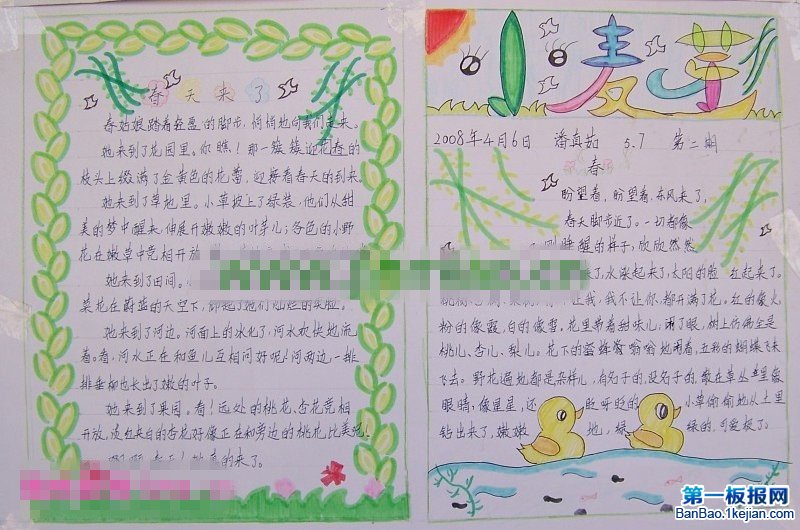 春天来了
春姑娘踏着轻盈的脚步,悄悄地向我们走来。
她来到了花园里。你瞧!那一簇簇迎花春的
枝头上缀满了金黄色的花蕾,迎接着春天的到来。
她来到了草地里。小草披上了绿装,他们从甜
美的梦中醒来,伸展开嫩嫩的叶芽儿;各色的小野
花在嫩草中竞相开放
她来到了田间。
菜花在蔚蓝的天空下,
她来到了河边。河面上的冰化了,河水欢快地流
着。看,河水正在和鱼儿互相问好呢!河两边,一排
排垂柳也长出了嫩的叶子。
她来到了果园。看!远处的桃花、杏花竞相
开放,淡红夹白的杏花好像正在和旁边的桃花比美呢!
真的来了。
2008年4月6日 潘真茹 5.7 第二期
春
盼望着,盼望着,东风来了,
春天脚步近了。一切都像
睡醒的样子,欣欣然然
了,水涨起来了,太阳的脸 红起来了。
让我,我不让你,都开满了花。红的像火,
粉的像霞,白的像雪。花里带着甜味儿;闭了眼,树上仿佛全是
桃儿、杏儿、梨儿。花下的蜜蜂嗡嗡地闹着,五彩的蝴蝶飞来
飞去。野花遍地都是:杂样儿,有名子的,没名子的,散在草丛里像
眼睛,像星星,还 眨呀眨的 小草偷偷地从土里
钻出来了,嫩嫩 地,绿 绿的,可爱极了。
第一板报网
BanBao.1kejian.com